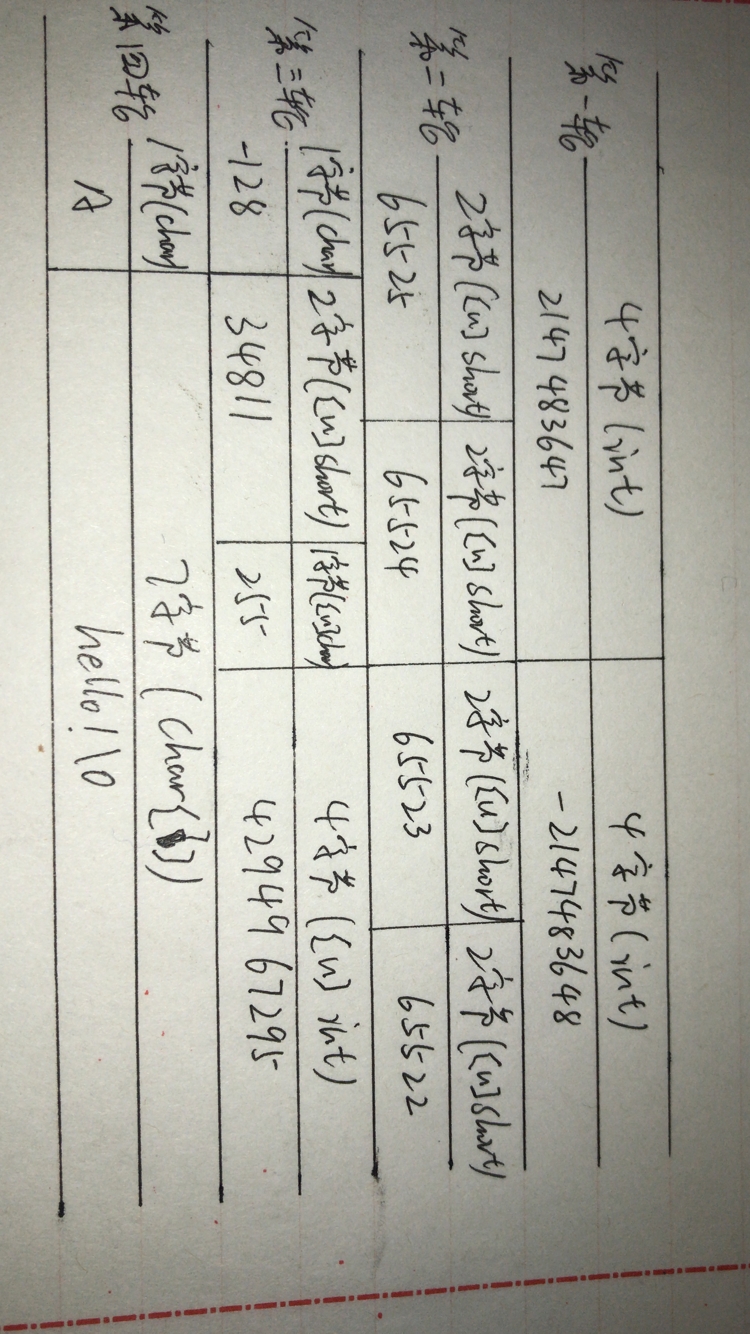 第一轮
4字节(int) 4字节(int)
2147483647 -2147483648
第二轮
2字节([u]short) 2字节([u]short) 2字节([u]short) 2字节([u]short)
65525 65524 65523 65522
第三轮
1字节(char) 2字节([u]short) 1字节([u]char) 4字节([u]int)
-128 34811 255 4294967295
第四轮
1字节(char) 7字节(char[])
A hello!\0